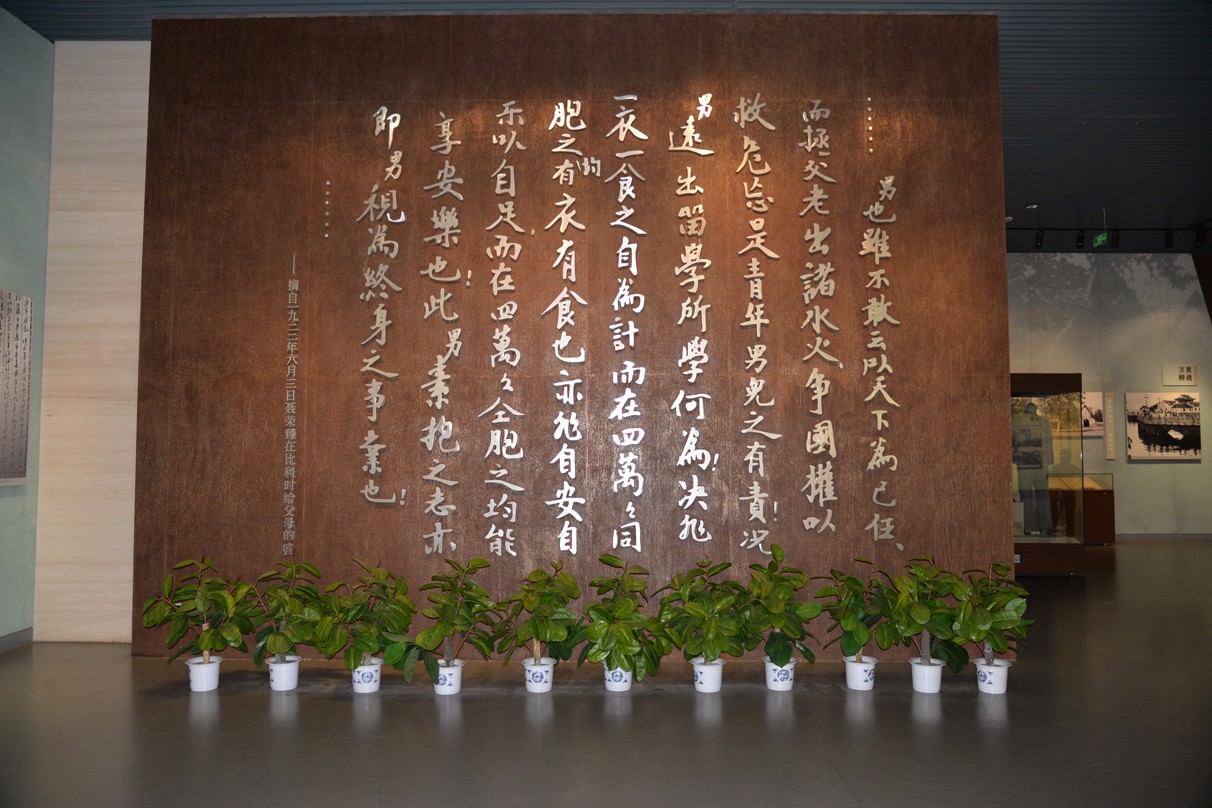 ……男也雖不敢云以天下為己任、
而拯父老出諸水火、争國權以
救危亡是青年男兒之有責!况
男遠出留學所學何為!决非
一衣一食之自為計而在四萬々同
胞之均有衣有食也亦非自安自
乐以自足,而在四萬々仝胞之均能
享安樂也!此男素抱之志亦
即男視為終身之事業也!
……
——摘自一九二二年六月三日聂荣臻在比利时给父母的信
万里
转战